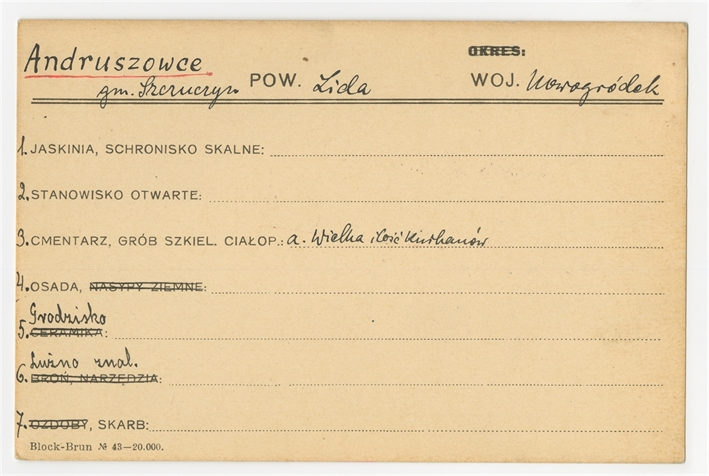 OKRES:
Andruszowce
gm. Szczuczyn. POW. Lida WOJ. Nowogródek
1. JASKINIA, SCHRONISKO SKALNE:
2. STANOWISKO OTWARTE:
3. CMENTARZ, GRÓB SZKIEL. CIAŁOP.: a. Wielka ilość kurhanów
4. OSADA, NASYPY ZIEMNE:
Grodzisko
5. CERAMIKA:
Luźno znal.
6. BROŃ, NARZĘDZIA:
7. OZDOBY, SKARB:
Block-Brun № 43—20.000.